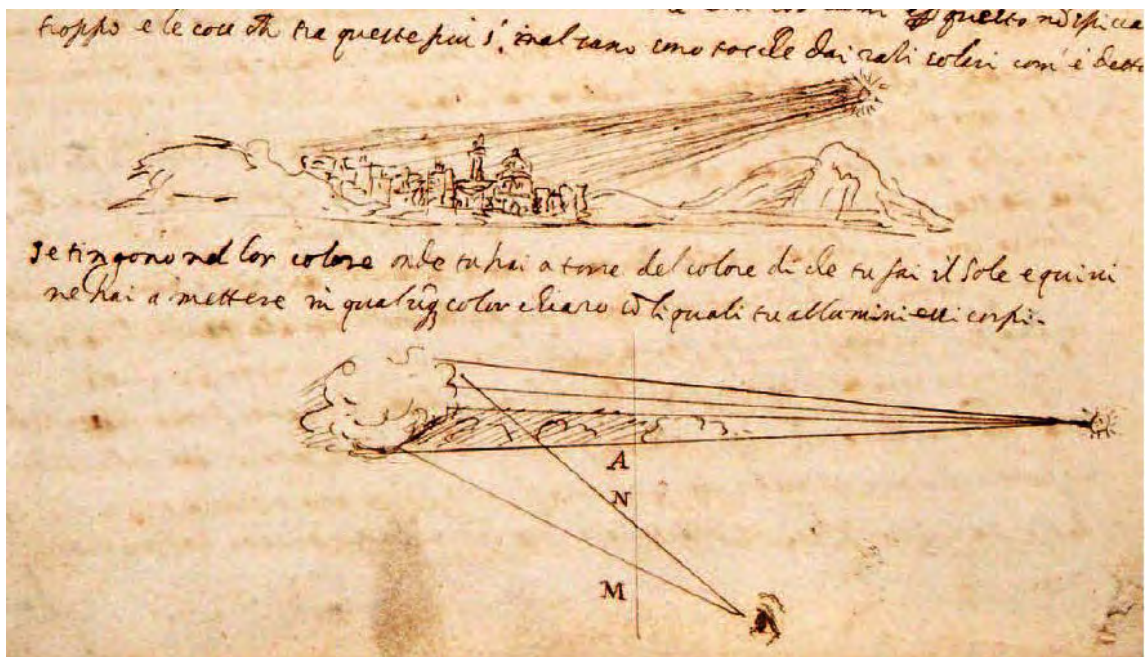 questo no ispicca
troppo e le cose ch tra queste piu s' inalzano sono tocche dai razi solari com' è detto
Se tingono nel lor colore onde tu hai a torre del colore di che tu fai il Sole e quivi
ne hai a mettere in qualũq color chiaro cō li quali tu allumini essi corpi.
A
N
M